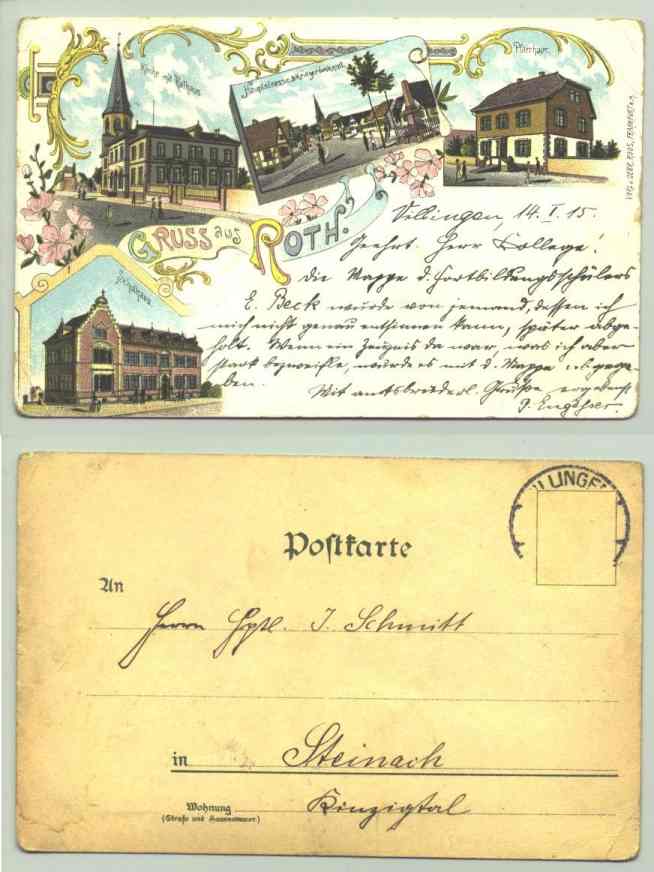 Kirche mit Rathaus
Hauptstrasse & Kriegerdenkmal
Pfarrhaus.
Schulhaus
GRUSS aus ROTH.
Villingen, 14. I. 15.
Geehrt. Herr Kollege!
Die Mappe d. Fortbildungsschülers
E. Beck wurde von jemand, dessen ich
mich nicht genau entsinnen kann, später abge-
holt. Wenn ein Zeugnis da war, was ich aber
stark bezweifle, wurde es mit d. Mappe abgege-
ben.
Mit amtsbrüderl. Grüße ergebenst
Postkarte
LLINGE
An
Herrn Hptl. J. Schmitt
in Steinach
Wohnung Kinzigtal
(Straße und Hausnummer)